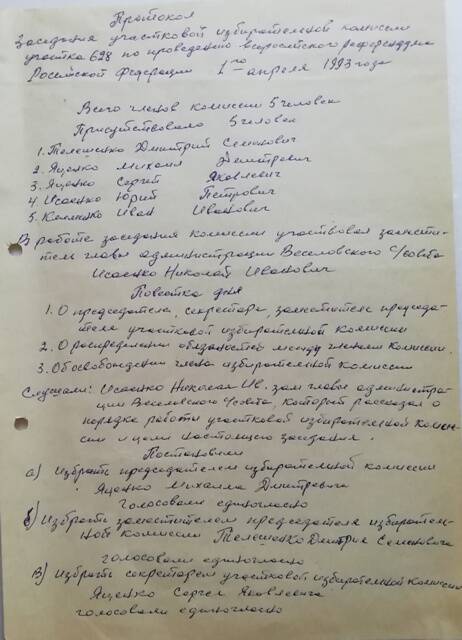 Протокол
Заседания участковой избирательной комиссии
участка 698 по проведению всероссийского референдума
Российской Федерации 1го апреля 1993 года
Всего членов комиссии 5 человек
Присутствовало 5 человек
1. Телешенко Дмитрий Семенович
2. Яценко Михаил Дмитревич
3. Яценко Сергей Яковлевич
4. Исаенко Юрий Петрович
5. Иван Иванович
В работе заседания комиссии участвовал замести-
тель главы администрации Веселовского с/совета
Исаенко Николай Иванович
Повестка дня
1. О председателе, секретаре, заместителе председа-
теля участковой избирательной комиссии
2. О распределении обязаностей между членами комиссии.
3. Об освобождении члена избирательной комиссии
Слушали: Исаенко Николая Ив. зам главы администра-
ции Веселовского с/совета, который рассказал о
порядке работы участковой избирательной комис-
сии и цели настоящего заседания.
Постановили
а) Избрать председателем избирательной комиссии
Яценко Михаила Дмитревича
Голосовали единогласно
б) Избрать заместителем председателя избиратель-
ной комиссии Телешенко Дмитрия Семеновича
голосовали единогласно
в) Избрать секретарем участковой избирательной комиссии
Яценко Сергея Яковлевича
голосовали единогласно